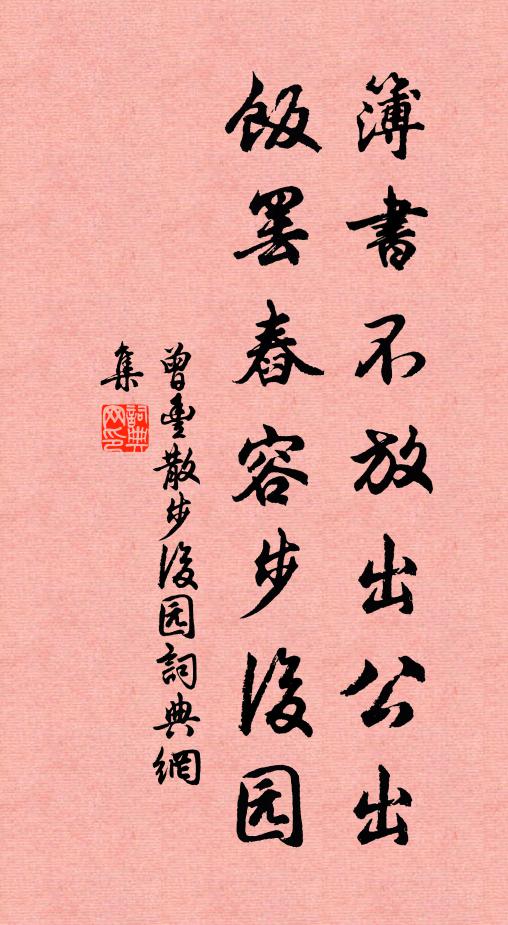 簿書不放出公出
飯罷舂容步後园
曾豐散步後园詞典網
集
詞典
网印